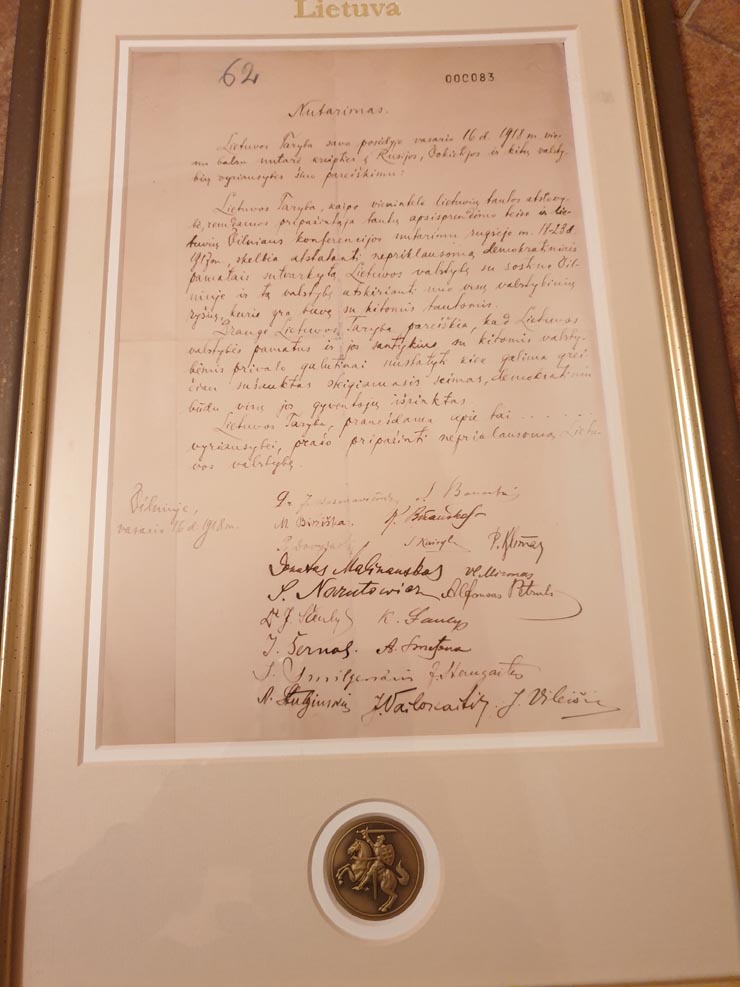 Lietuva
62
000083
Nutarimas.
Lietuvos Taryba savo posėdyje vasario 16 d. 1918 m. vie-
nu balsu nutarė kreiptis į Rusijos, Vokietijos ir kitų valsty-
bių vyriausybes šiuo pareiškimu:
Lietuvos Taryba, kaipo vienintelė lietuvių tautos atstovy-
bė, remdamos pripažintąja tautų apsisprendimo teise ir lie-
tuvių Vilniaus konferencijos nutarimu rugsėjo m. 18-23 d.
1917 m., skelbia atstatanti nepriklausomą demokratiniais
pamatais sutvarkytą Lietuvos valstybę su sostine Vil-
niuje ir tą valstybę atskirianti nuo visų valstybinių
ryšių, kurie yra buvę su kitomis tautomis.
Drauge Lietuvos Taryba pareiškia, kad Lietuvos
valstybės pamatus ir jos santykius su kitomis valsty-
bėmis privalo galutinai nustatyti kiek galima grei-
čiau sušauktas steigiamasis seimas, demokratiniu
būdu visų jos gyventojų išrinktas.
Lietuvos Taryba, pranešdama apie tai . . . . . .
vyriausybei, prašo pripažinti nepriklausomą Lietu-
vos valstybę.
Vilniuje,
vasario 16 d. 1918 m.
Dr J. Basanavičius S. Banaitis
M. Biržiška K. Bizauskas
P. Dovydaitis S. Kairys P. Klimas
Donatas Malinauskas Vl. Mironas
S. Narutowicz Alfonsas Petrulis
Dr J. Šaulys K. Šaulys
J. Šernas A. Smetona
J. Smilgevičius J. Staugaitis
A. Stulginskis J. Vailokaitis J. Vileišis